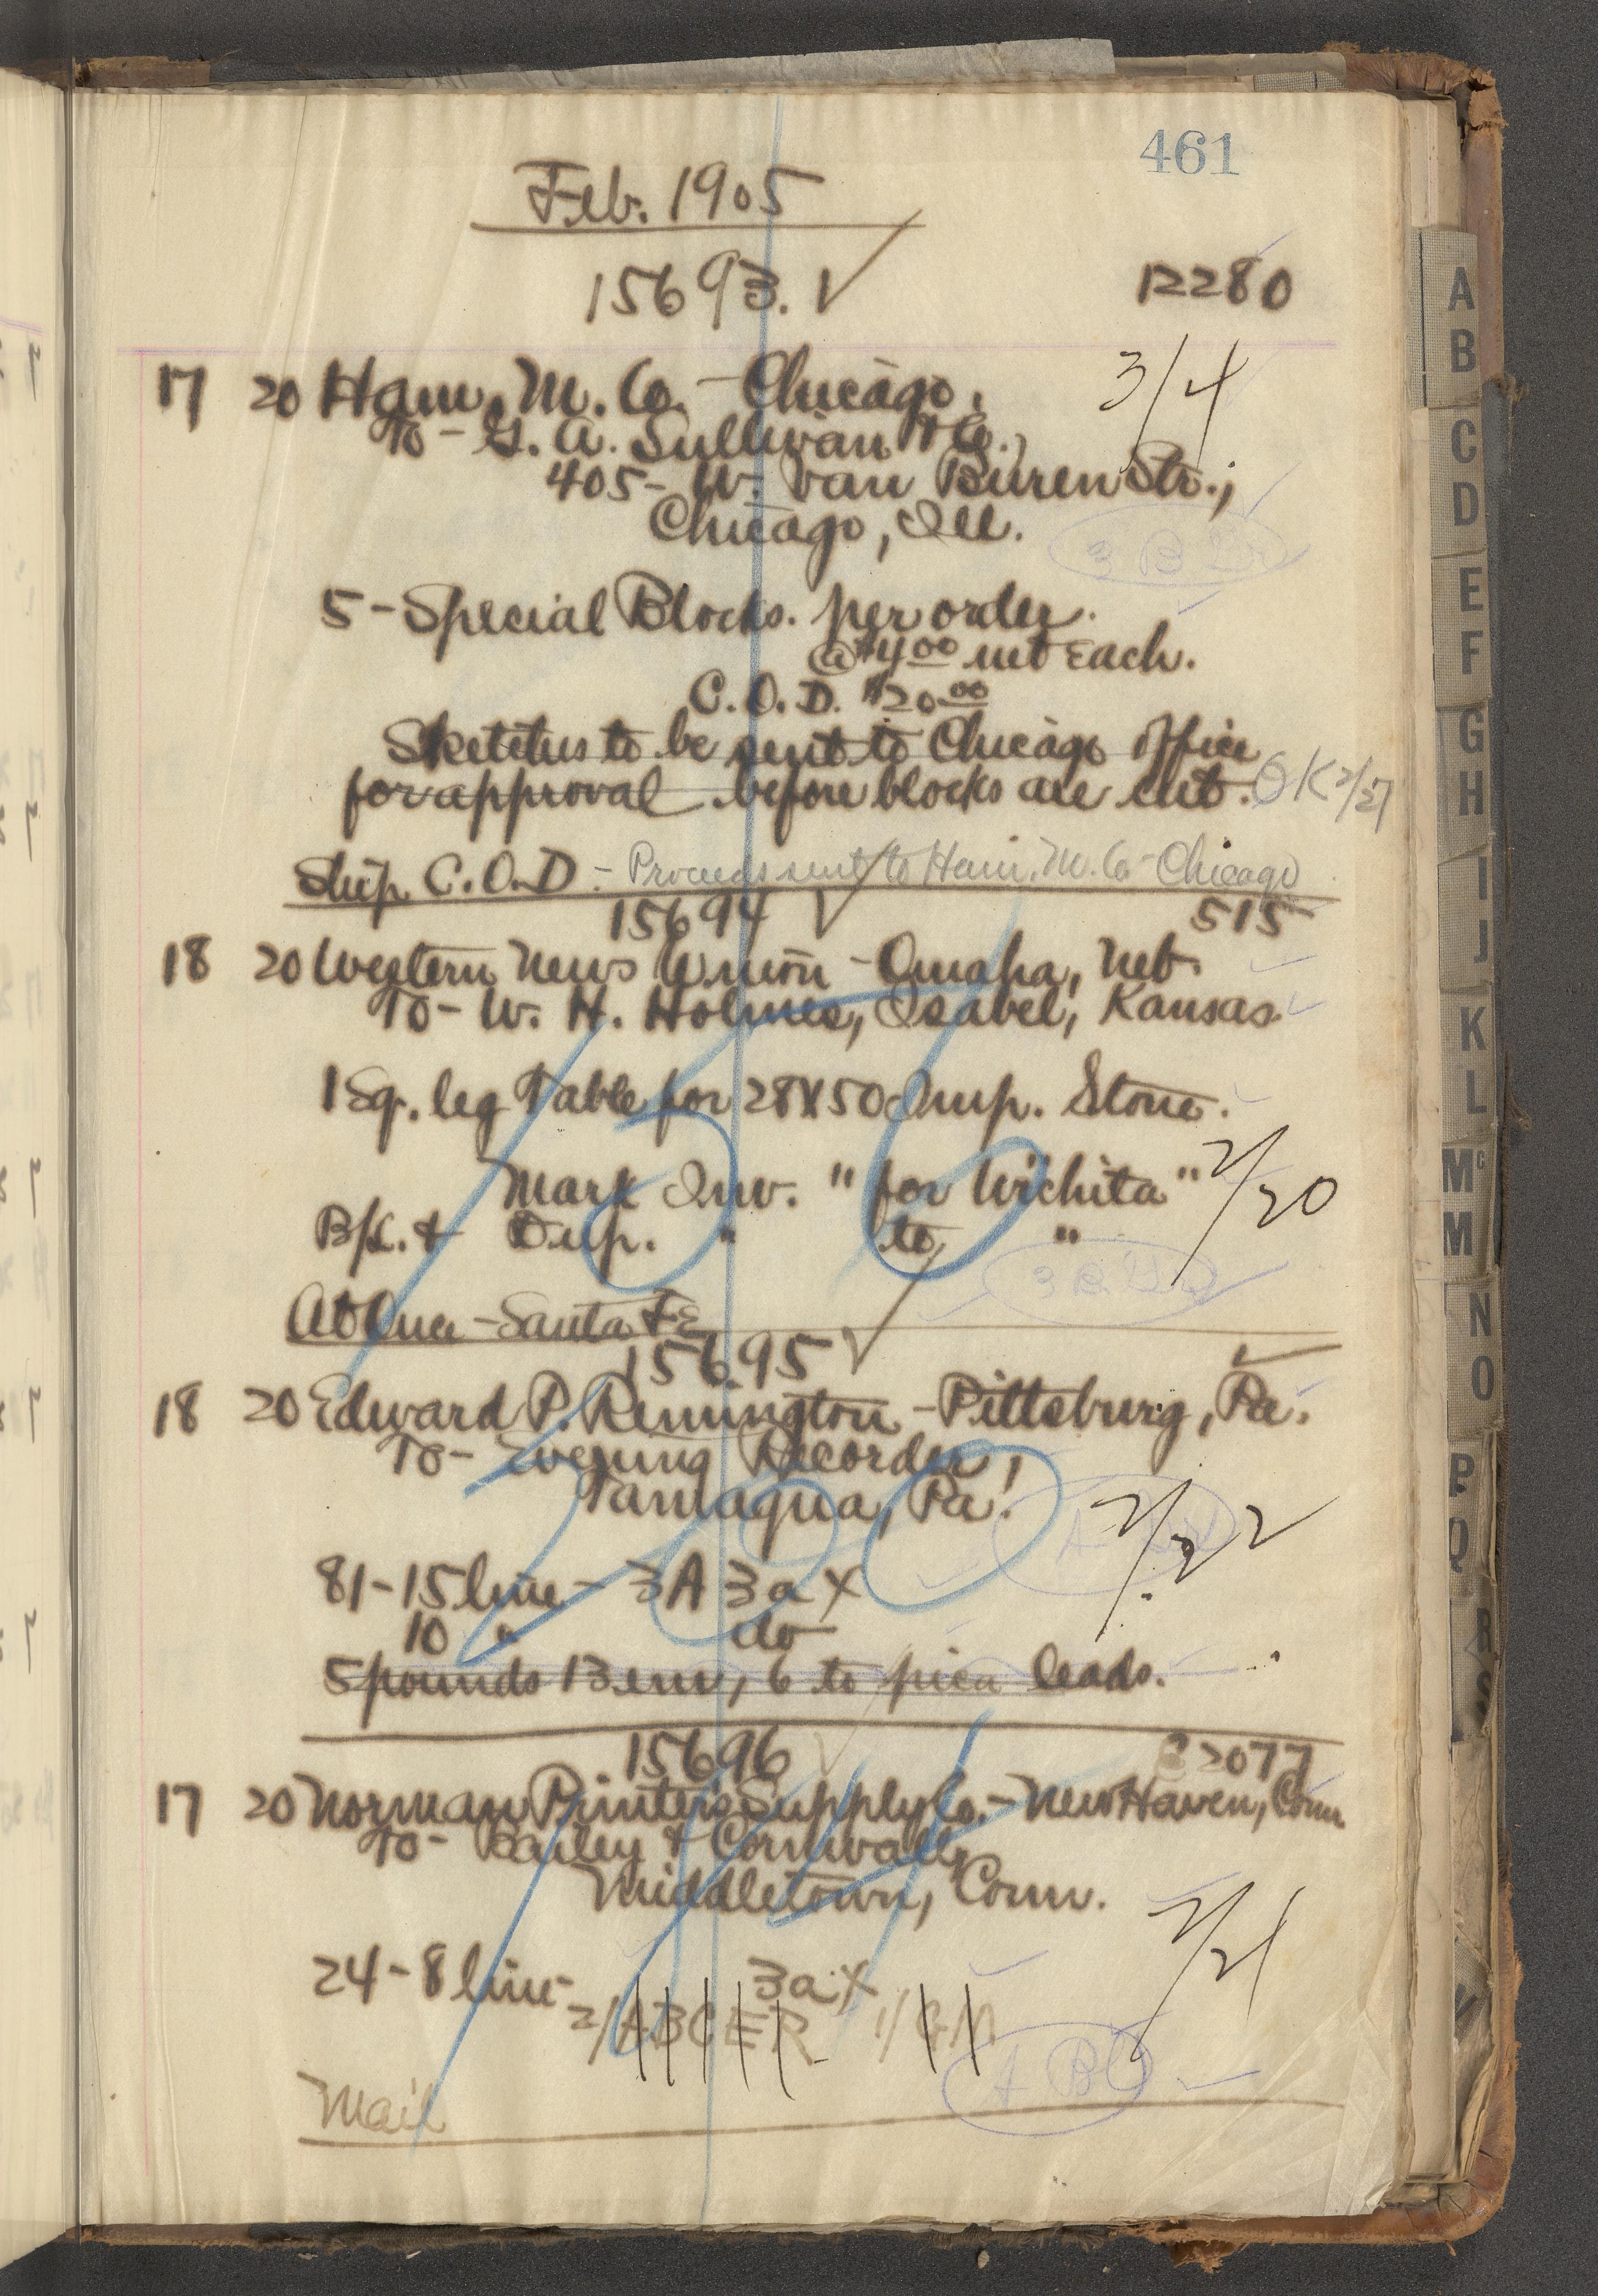 461
Feb. 1905
15693. ✓ 12280
17 20 Ham. M. Co. - Chicago. 3/4
To - G. A. Sullivan & Co.,
405 - W. Van Buren Str.,
Chicago, Ill.
3 B
5 - Special Blocks. per order.
@ $4.00 net Each.
C.O.D. $20.00
Sketches to be sent to Chicago office
for approval before blocks are cut. OK 2/27
Ship C.O.D. - Proceeds sent to Ham. M. Co Chicago
15694 ✓ 515
18 20 Western News Union - Omaha, Neb.
To - W. H. Holmes, Isabel, Kansas
1 Sq. leg Table for 28X50 Imp. Stone.
Mark Inv. "for Wichita" 2/20
B/L. & Dup. " to "
3 B.
At Once - Santa Fe
15695 ✓
18 20 Edward P. Remington - Pittsburg, Pa.
To - Evening Recorder,
Tamaqua, Pa. 2/22
81 - 15 line - 3A 3a X
10 " do
5 pounds 13 em, 6 to pica leads.
15696 2077
17 20 Norman Printers Supply Co. - New Haven, Conn
To - Bailey & Cornwall,
Middletown, Conn.
2/21
24 - 8 line - 3a X
2/ABCER 1/GM
A B
Mail
A
B
C
D
E
F
G
H
I
J
K
L
Mc
M
N
O
P
Q
R
S